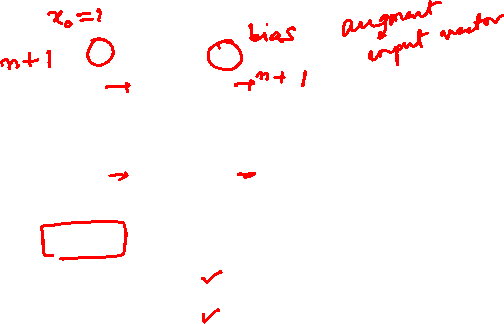 x₀=1
n+1
bias
n+1
augment
input vector